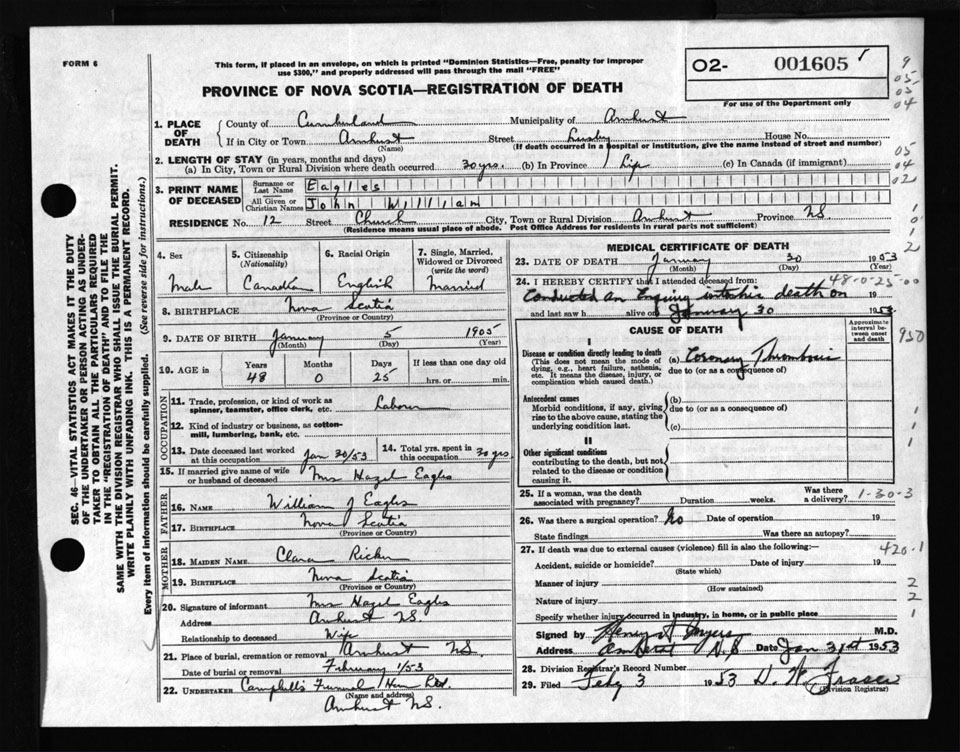 FORM 6
This form, if placed in an envelope, on which is printed "Dominion Statistics—Free, penalty for improper
use $300," and properly addressed will pass through the mail "FREE"
O2- 001605
For use of the Department only
PROVINCE OF NOVA SCOTIA—REGISTRATION OF DEATH
9
05
03
04
05
04
02
1
0
1
2
1. PLACE OF DEATH
County of Cumberland Municipality of Amherst
If in City or Town Amherst Street Lusby House No.
(Name) (If death occurred in a hospital or institution, give the name instead of street and number)
2. LENGTH OF STAY (in years, months and days)
(a) In City, Town or Rural Division where death occurred 30 yrs. (b) In Province Life (c) In Canada (if immigrant)
3. PRINT NAME OF DECEASED
Surname or Last Name Eagles
All Given or Christian Names John William
RESIDENCE No. 12 Street Church City, Town or Rural Division Amherst Province NS
(Residence means usual place of abode. Post Office Address for residents in rural parts not sufficient)
4. Sex Male
5. Citizenship (Nationality) Canadian
6. Racial Origin English
7. Single, Married, Widowed or Divorced (write the word) Married
8. BIRTHPLACE Nova Scotia
(Province or Country)
9. DATE OF BIRTH January 5 1905
(Month) (Day) (Year)
10. AGE in Years 48 Months 0 Days 25 If less than one day old hrs. or min.
OCCUPATION
11. Trade, profession, or kind of work as spinner, teamster, office clerk, etc. Labour
12. Kind of industry or business, as cotton-mill, lumbering, bank, etc.
13. Date deceased last worked at this occupation Jan 30/53
14. Total yrs. spent in this occupation 30 yrs.
15. If married give name of wife or husband of deceased Mrs Hazel Eagles
FATHER
16. NAME William J Eagles
17. BIRTHPLACE Nova Scotia
(Province or Country)
MOTHER
18. MAIDEN NAME Clara
19. BIRTHPLACE Nova Scotia
(Province or Country)
20. Signature of informant Mrs Hazel Eagles
Address Amherst NS.
Relationship to deceased Wife
21. Place of burial, cremation or removal Amherst NS.
Date of burial or removal February 1/53
22. UNDERTAKER Campbell's Funeral
(Name and address)
Amherst NS.
MEDICAL CERTIFICATE OF DEATH
23. DATE OF DEATH January 30 1953
(Month) (Day) (Year)
24. I HEREBY CERTIFY that I attended deceased from: 48-0-25-00
Conducted an Enquiry into his death on 19
and last saw h alive on January 30 1953
CAUSE OF DEATH
Approximate interval between onset and death
950
I
Disease or condition directly leading to death (a) Coronary Thrombosis
(This does not mean the mode of dying, e.g., heart failure, asthenia, etc. It means the disease, injury, or complication which caused death.)
due to (or as a consequence of)
Antecedent causes
Morbid conditions, if any, giving rise to the above cause, stating the underlying condition last.
(b)
due to (or as a consequence of)
(c)
1
1
1
II
Other significant conditions
contributing to the death, but not related to the disease or condition causing it.
25. If a woman, was the death associated with pregnancy? Duration weeks. Was there a delivery? 1-30-3
26. Was there a surgical operation? No Date of operation 19
State findings Was there an autopsy?
27. If death was due to external causes (violence) fill in also the following:— 420-1
Accident, suicide or homicide? Date of injury 19
(State which)
Manner of injury 2
(How sustained)
Nature of injury 2
Specify whether injury occurred in industry, in home, or in public place 1
Signed by M.D.
Address Amherst N.S Date Jan 31st 1953
28. Division Registrar's Record Number
29. Filed Feby 3 1953 D. W. Fraser
(Division Registrar)
SEC. 46—VITAL STATISTICS ACT MAKES IT THE DUTY
OF THE UNDERTAKER OR PERSON ACTING AS UNDER-
TAKER TO OBTAIN ALL THE PARTICULARS REQUIRED
IN THE "REGISTRATION OF DEATH" AND TO FILE THE
SAME WITH THE DIVISION REGISTRAR WHO SHALL ISSUE THE BURIAL PERMIT.
WRITE PLAINLY WITH UNFADING INK. THIS IS A PERMANENT RECORD.
Every item of information should be carefully supplied. (See reverse side for instructions.)